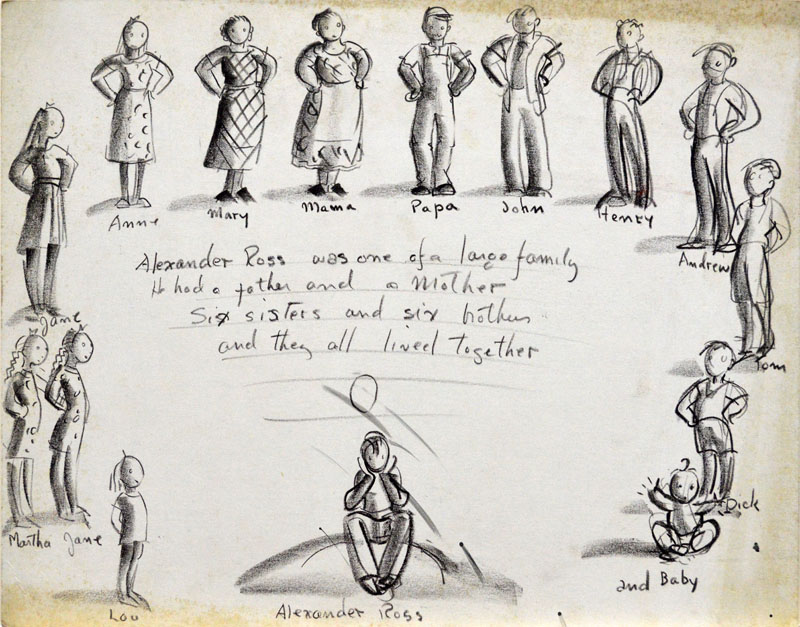 Anne Mary Mama Papa John Henry
Andrew
Tom
Jane
Alexander Ross was one of a large family
He had a father and a Mother
Six sisters and six bothers
and they all lived together
Dick
Martha Jane
and Baby
Lou
Alexander Ross